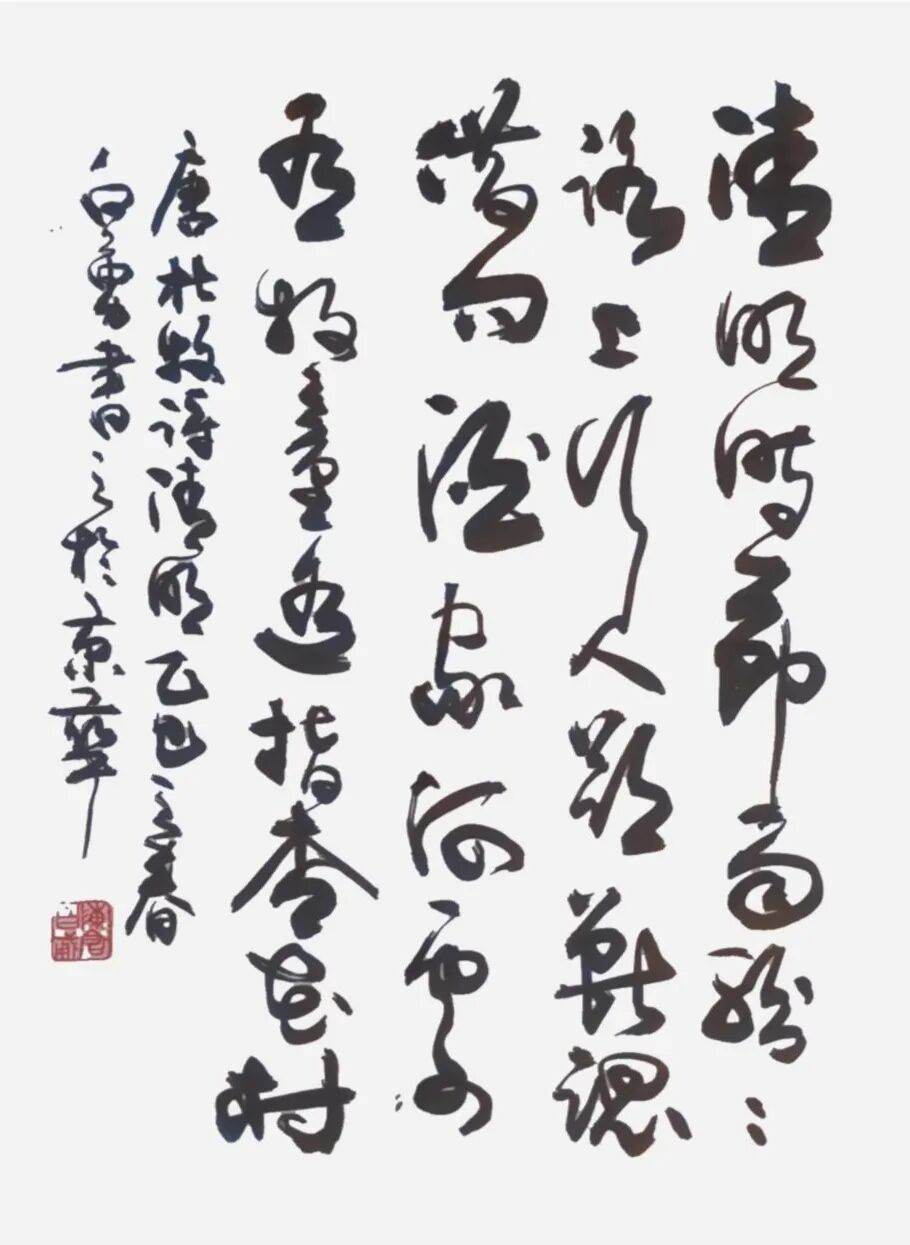 清明時節雨紛〻
路上行人欲斷魂
借問酒家何處
有牧童遥指杏花村
唐杜牧詩清明乙巳之春
白雲書之於京華